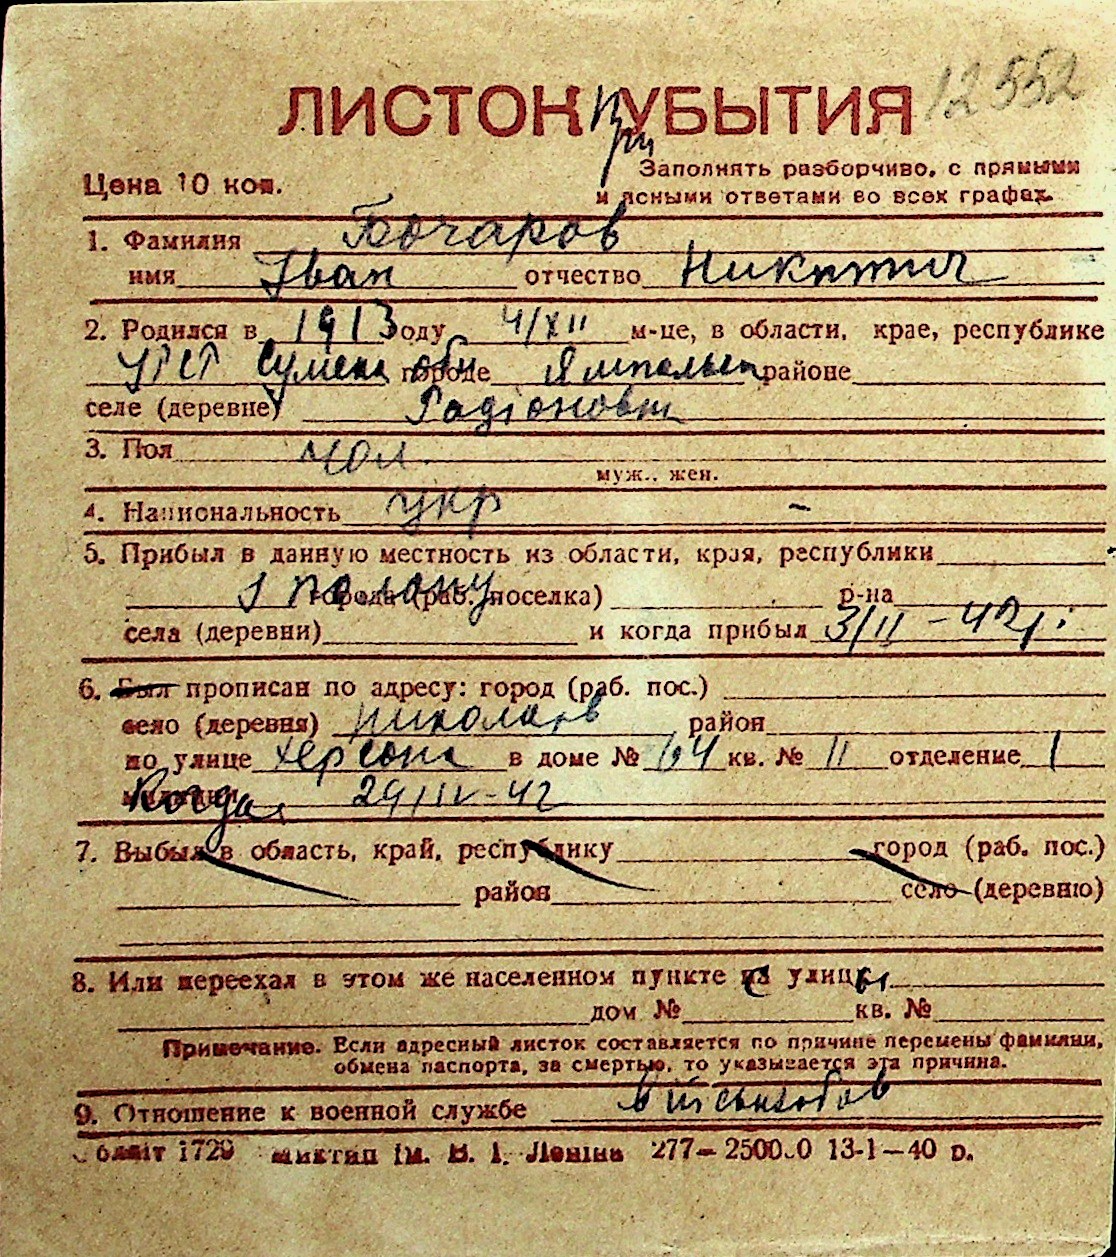 12552
ЛИСТОК УБЫТИЯ
При
Цена 10 коп.
Заполнять разборчиво, с прямыми
и ясными ответами во всех графах.
1. Фамилия Бочаров
имя Іван отчество Никитич
2. Родился в 1913 году 4/XII м-це, в области, крае, республике
УССР Сумска обл городе Ямпольск районе
селе (деревне) Радіоновки
3. Пол чол.
муж., жен.
4. Национальность укр –
5. Прибыл в данную местность из области, края, республики
з полону города (раб. поселка) р-на
села (деревни) и когда прибыл 3/II – 42 г.
6. Был прописан по адресу: город (раб. пос.)
село (деревня) Николаїв район
по улице Херсонс в доме № 64 кв. № 11 отделение 1
милиции Когда 24/IV-42
7. Выбыл в область, край, республику город (раб. пос.)
район село (деревню)
8. Или переехал в этом же населенном пункте с улицы
дом № кв. №
Примечание. Если адресный листок составляется по причине перемены фамилии,
обмена паспорта, за смертью, то указывается эта причина.
9. Отношение к военной службе війсьнзобов
Обліт 1729 ім. В. І. Леніна 277–13-1–40 р.